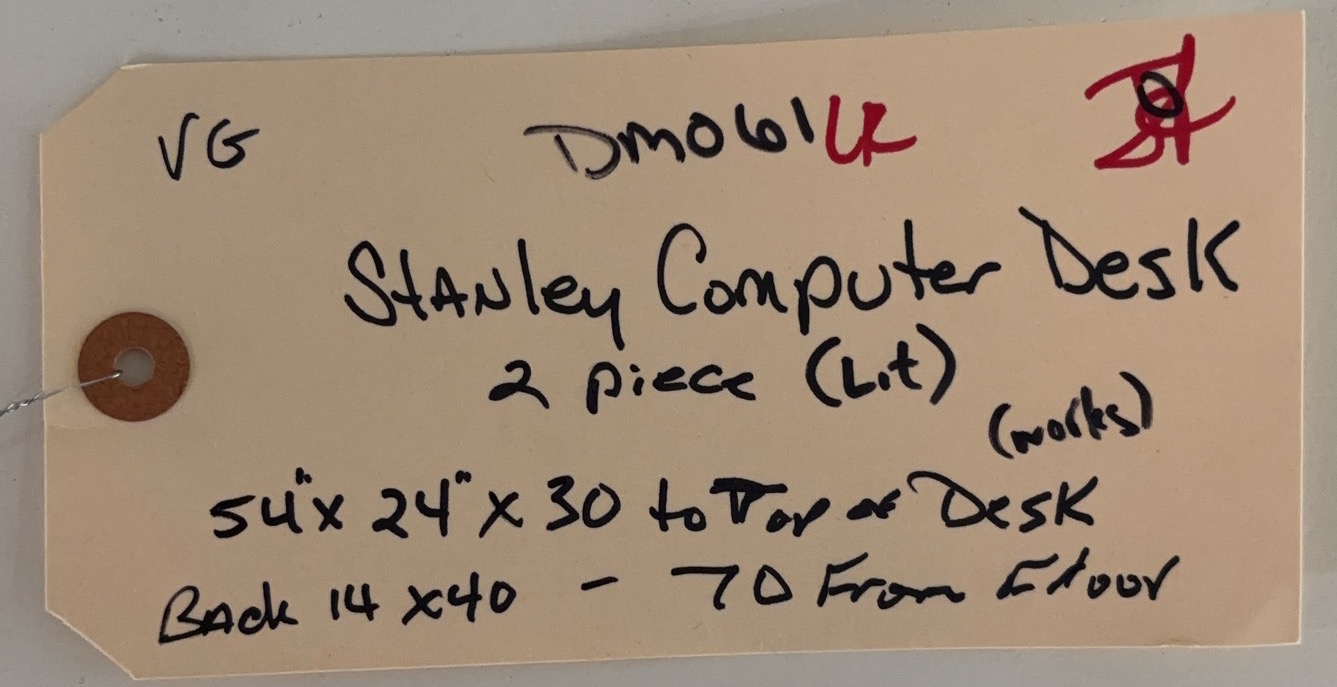 VG DM061 LR
Stanley Computer Desk
2 piece (Lit)
(works)
54" x 24" x 30 to Top of Desk
Back 14 x 40 - 70 From Floor